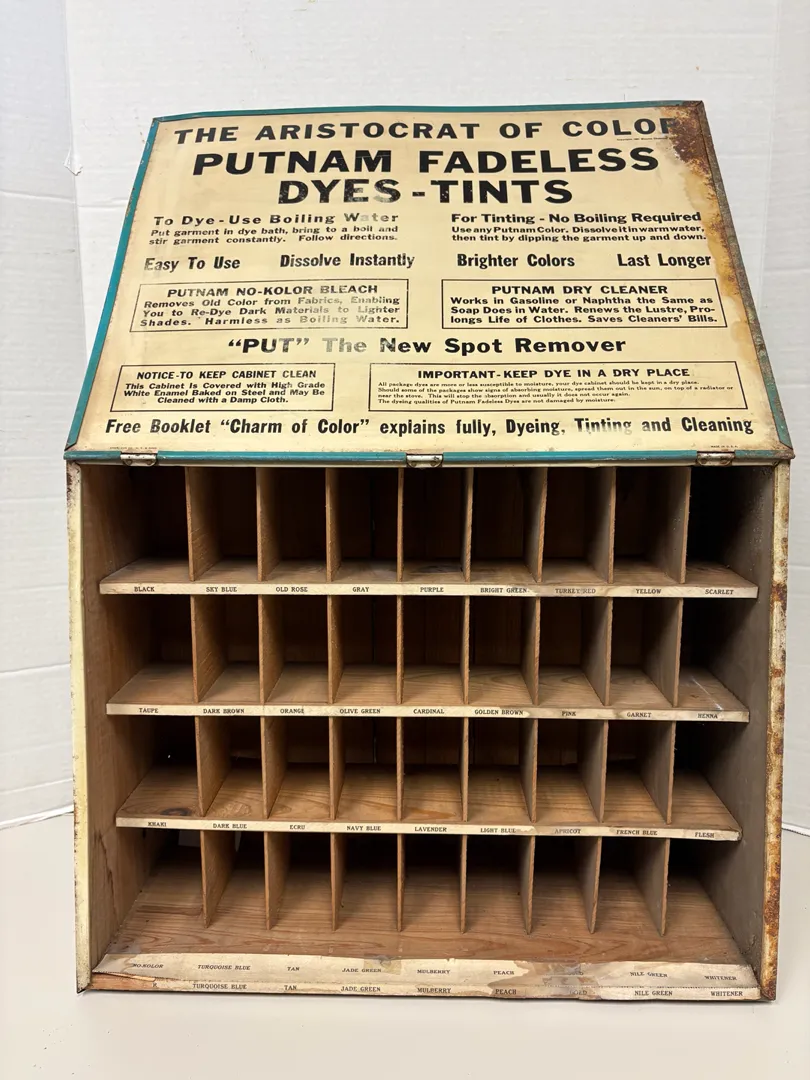 THE ARISTOCRAT OF COLOR
PUTNAM FADELESS
DYES-TINTS
To Dye-Use Boiling Water
Put garment in dye bath, bring to a boil and
stir garment constantly. Follow directions.
For Tinting-No Boiling Required
Use any Putnam Color. Dissolve it in warm water,
then tint by dipping the garment up and down.
Easy To Use Dissolve Instantly Brighter Colors Last Longer
PUTNAM NO-KOLOR BLEACH
Removes Old Color from Fabrics, Enabling
You to Re-Dye Dark Materials to Lighter
Shades. Harmless as Boiling Water.
PUTNAM DRY CLEANER
Works in Gasoline or Naphtha the Same as
Soap Does in Water. Renews the Lustre, Pro-
longs Life of Clothes. Saves Cleaners' Bills.
"PUT" The New Spot Remover
NOTICE-TO KEEP CABINET CLEAN
This Cabinet Is Covered with High Grade
White Enamel Baked on Steel and May Be
Cleaned with a Damp Cloth.
IMPORTANT-KEEP DYE IN A DRY PLACE
All package dyes are more or less susceptible to moisture, your dye cabinet should be kept in a dry place.
Should some of the packages show signs of absorbing moisture, spread them out in the sun, on top of a radiator or
near the stove. This will stop the absorption and usually it does not occur again.
The dyeing qualities of Putnam Fadeless Dyes are not damaged by moisture.
Free Booklet "Charm of Color" explains fully, Dyeing, Tinting and Cleaning
MADE IN U.S.A.
BLACK SKY BLUE OLD ROSE GRAY PURPLE BRIGHT GREEN TURKEY RED YELLOW SCARLET
TAUPE DARK BROWN ORANGE OLIVE GREEN CARDINAL GOLDEN BROWN PINK GARNET HENNA
KHAKI DARK BLUE ECRU NAVY BLUE LAVENDER LIGHT BLUE APRICOT FRENCH BLUE FLESH
NO-KOLOR TURQUOISE BLUE TAN JADE GREEN MULBERRY PEACH NILE GREEN WHITENER
R TURQUOISE BLUE TAN JADE GREEN MULBERRY PEACH NILE GREEN WHITENER